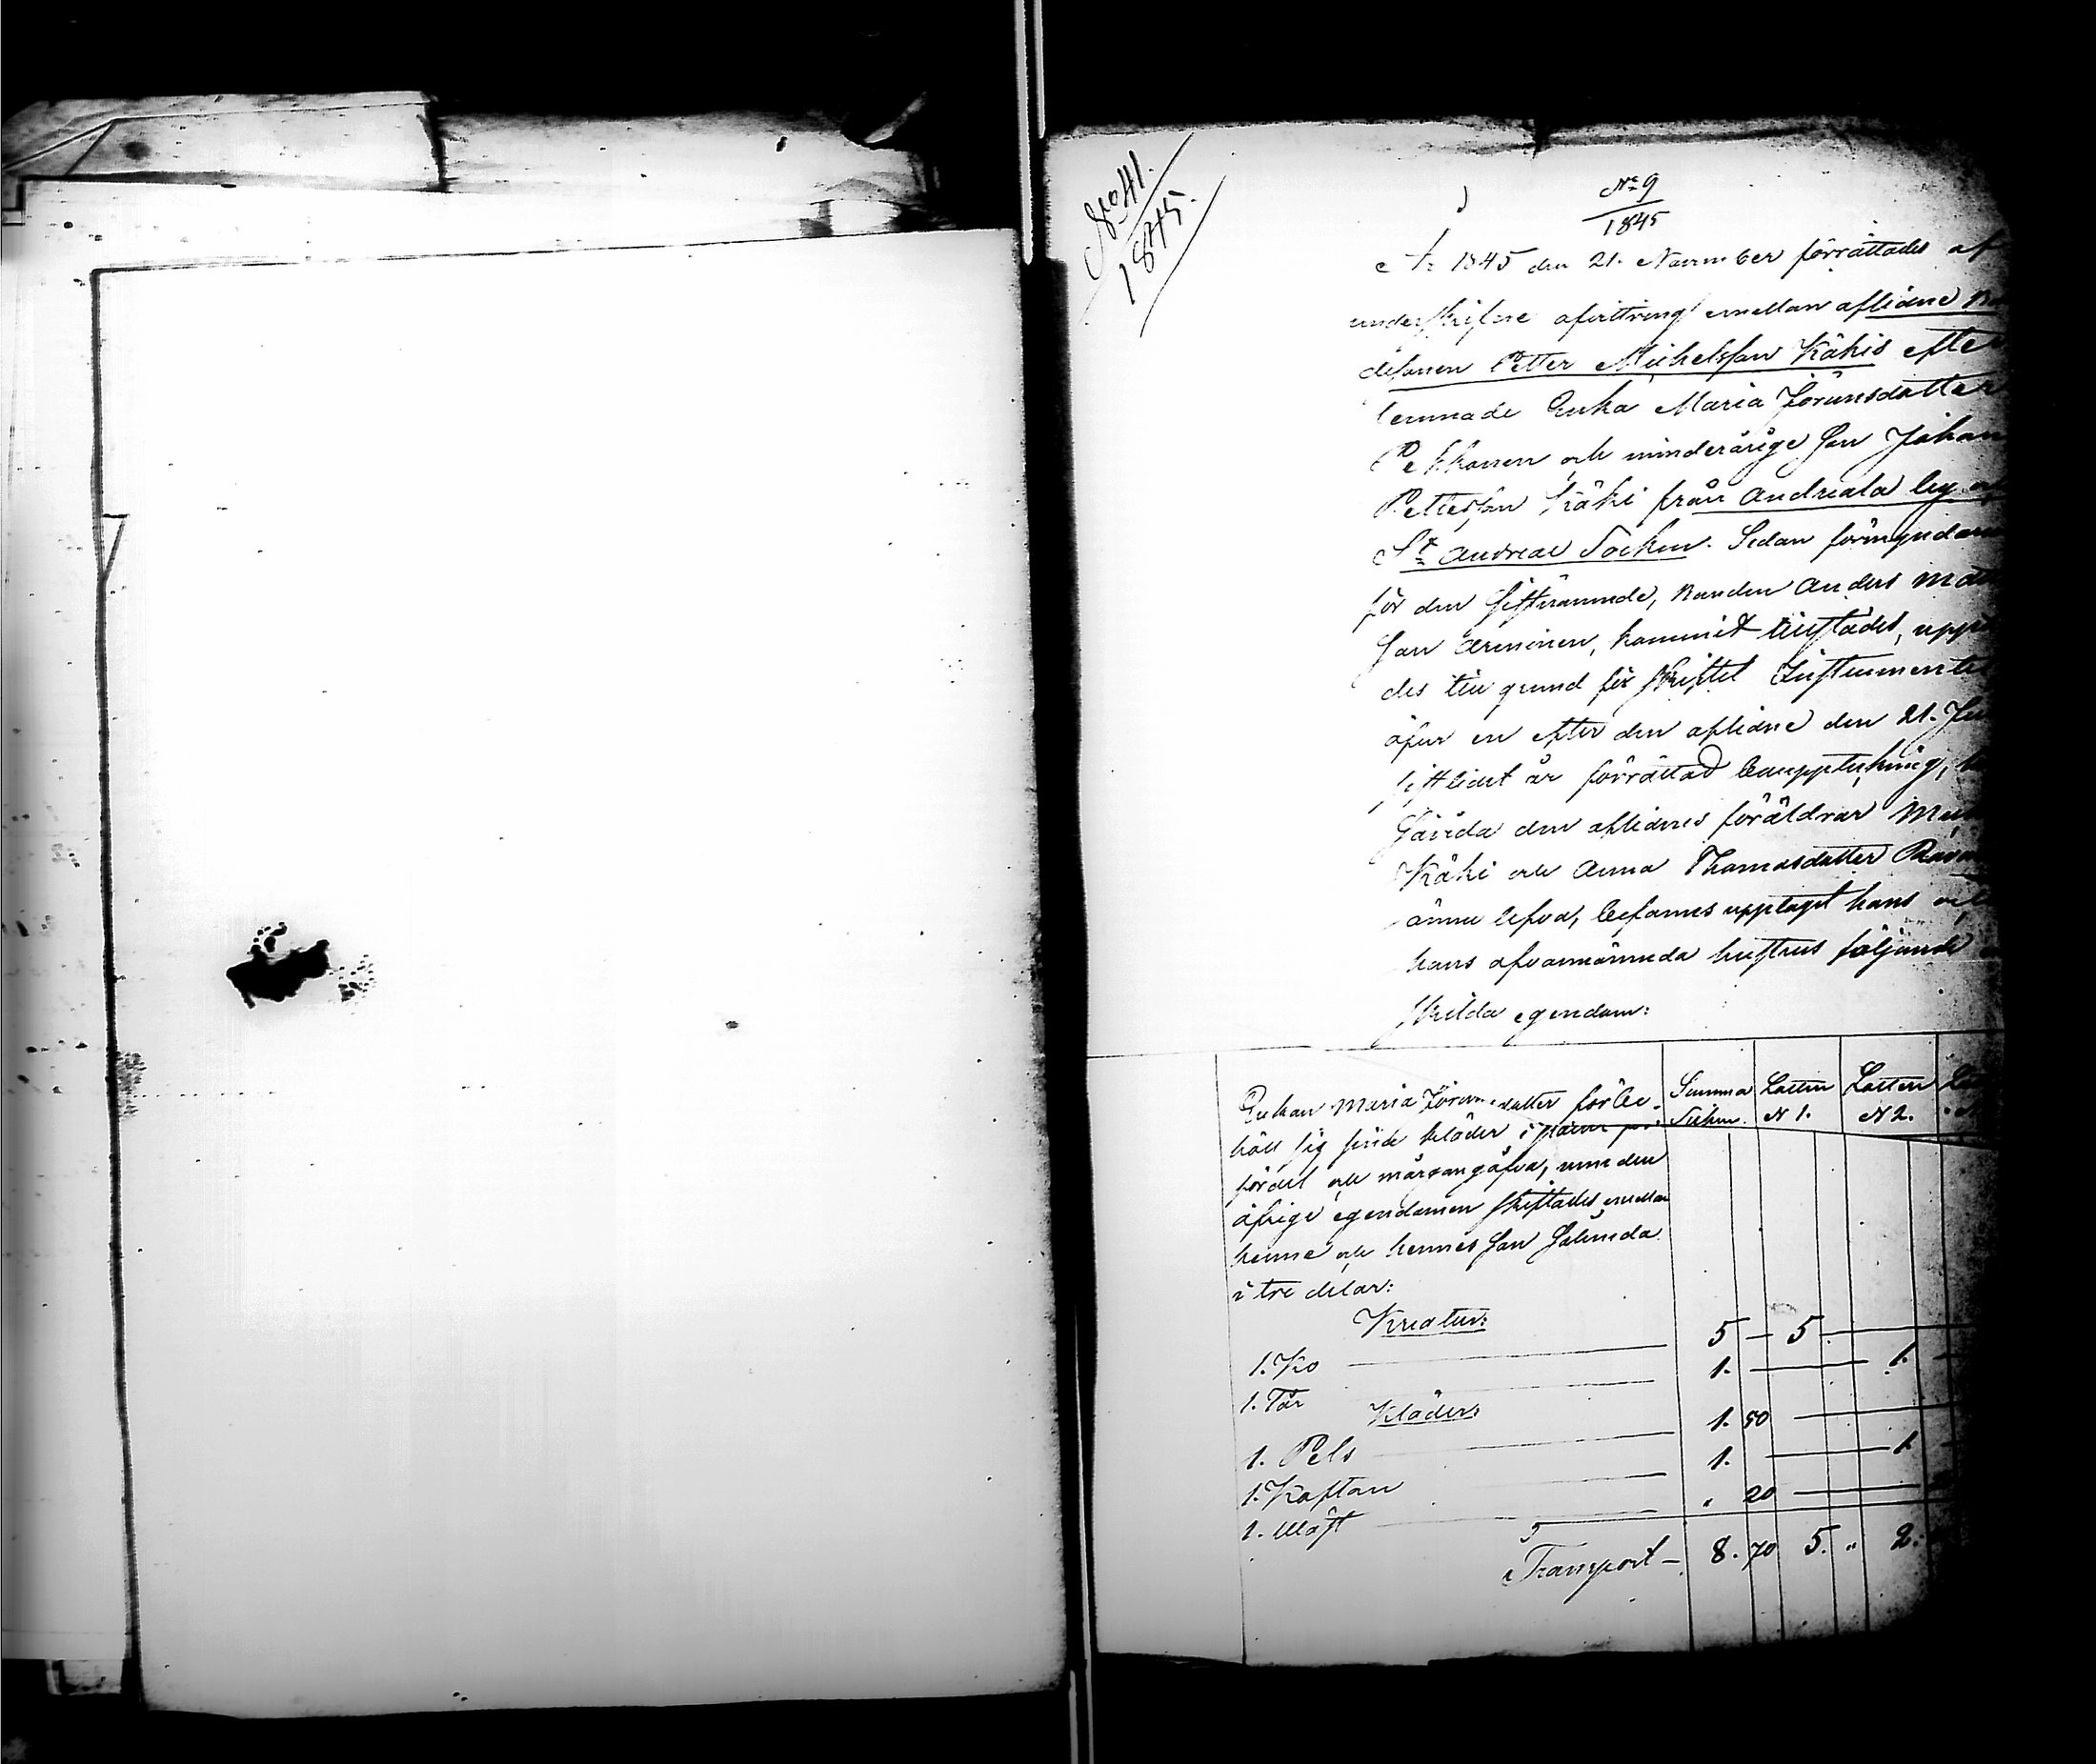 No 41.
1845.
No 9
1845
År 1845 den 21. November förrättades af
underskrifne afvittring emellan aflidne
Petter Michelsson Kähis efter
lemnade Enka Maria Göransdotter
Pekkanen och minderårige son Johan
Pettersson Kähi från Andreala by
St Andreae Socken. Sedan förmyndaren
för den sistnämnde, Bonden Anders
son Arminen, kommit tillstädes,
des till grund för skiftet Instrumentet
öfver en efter den aflidne den 21.
sistlidet år förrättad bouppteckning,
Gärda den aflidnes föräldrar
Kähi och Anna Thomasdotter
ännu lefva, befanns upptaget hans och
hans ofvannämnda hustrus följande
skilda egendom:
Enkan Maria Göransdotter förbe-
höll sig sina kläder i
fördel och morgongåfva, men den
öfrige egendomen skiftades emellan
henne och hennes son
i tre delar:
Summa Lotten Lotten
Silfver. N 1. N 2.
Kreatur:
1. Ko 5 — 5
1. Får 1. — 1.
Kläder:
1. Pels 1. 50
1. Kaftan 1. — 1
1. Wäst " 20
Transport — 8. 70 5. " 2.